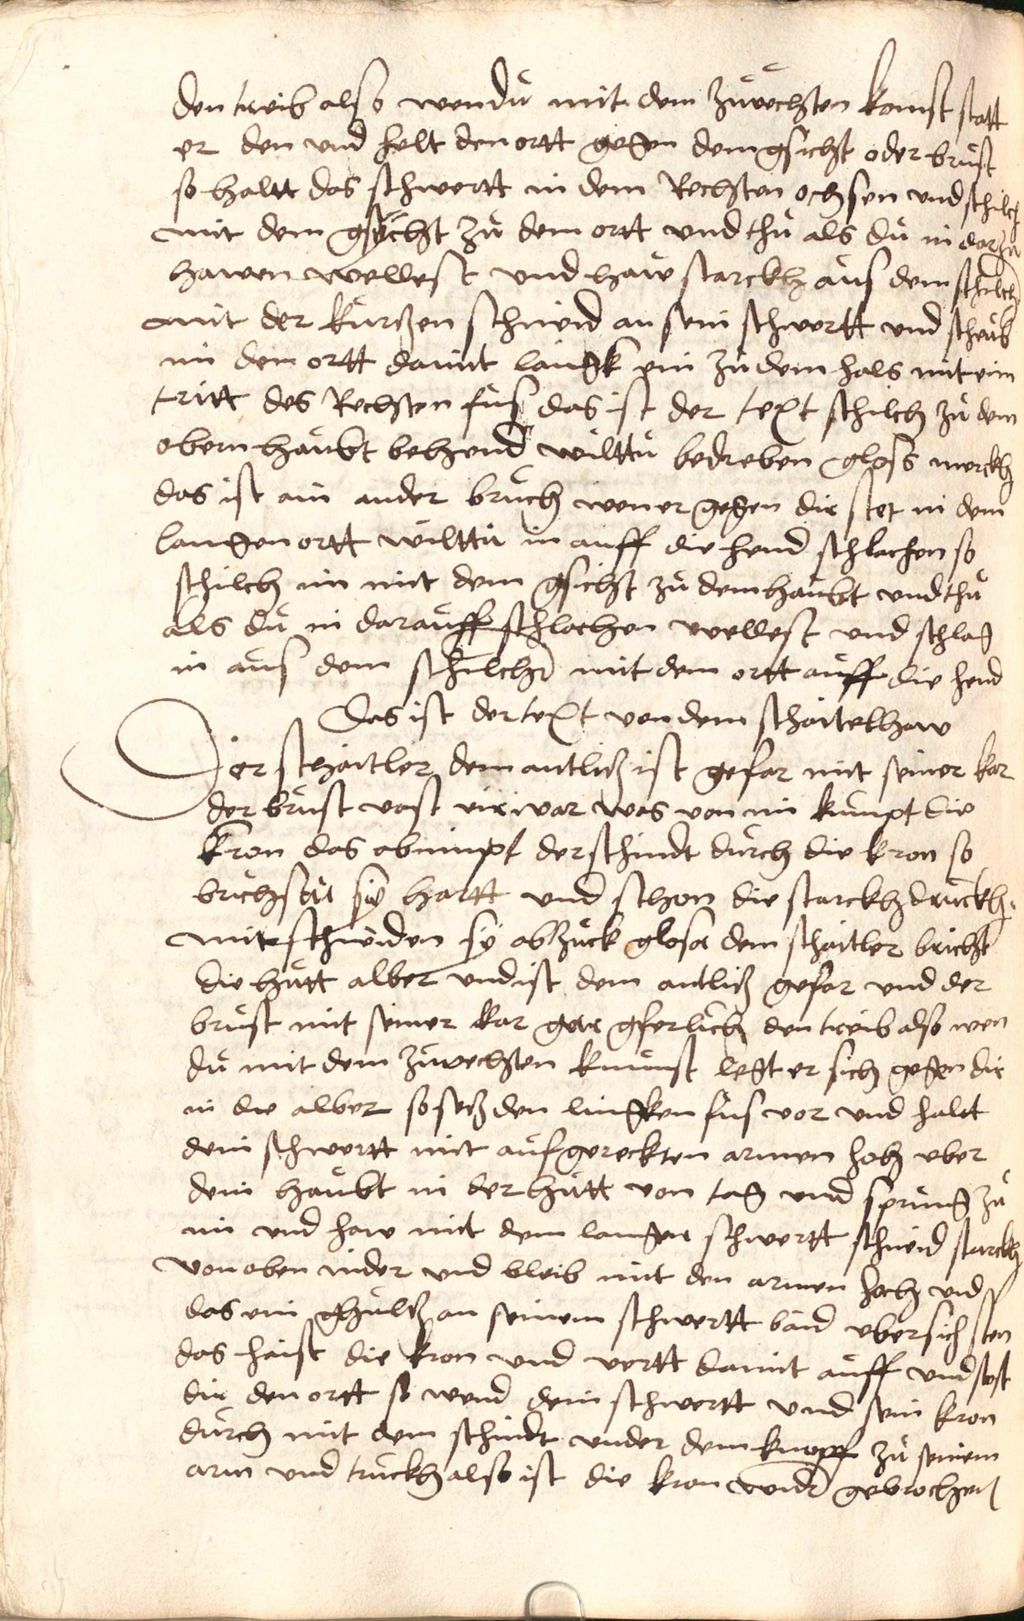 den treib also wen du mit dem zuvechsten komst stett
er den und helt den ortt gegen dem gsicht oder brust
so haltt das schwertt in dem Rechsten ochsen und schilch
mit dem gsycht zu dem ortt und thu als du in dar zu
hawen wellest und haw starckh aus dem schilch
mit der kurßen schneid an sein schwertt und scheub
im den ortt damit langk ein zu dem hals mit eim
tritt des Rechsten fus das ist der text schilch zu dem
obern haubt behend wilttu bedreben gloss merckh
das ist ain ander bruch wen er gegen dir stet in dem
langen ortt wilttu in auff die hend schlachen so
schilch im mit dem gsicht zu dem haubt und thu
als du in darauff schlachen wellest und schlag
in aus dem schilchr mit dem ortt auff die hend
Das ist der text von dem schaitelhaw
Der schaitler dem antliß ist gefar mit seiner kar
der brust vast wirwar was von im kumpt die
kron das abnimpt der schindt durch die kron so
brichstu sy hartt und schon die starckh druckh
mit schneiden sy abzuck glosa dem schaitler bricht
die hutt alber und ist dem antliß gefar und der
brust mit seiner kar gar gferlich den treib also wen
du mit dem zuvechsten kumst legt er sich gegen dir
in die alber so seß den lingken fus vor und halt
dein schwertt mit aufgereckten armen hoch uber
dein haubt in der hutt von tag und spring zu
im und haw mit dem langen schwertt schneid starckh
von oben nider und bleib mit den armen hoch und
das ein ghulß an seinem schwertt band ubersich sten
das haist die kron und vertt damit auff und stost
dir den ortt so wend dein schwertt und sein kron
durch mit dem schindt under dem knopff zu seinem
arm und truckh also ist die kron widr gebrochen